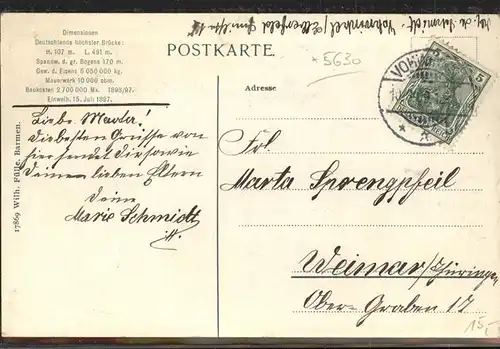 Dimensionen
Deutschlands höchster Brücke:
H. 107 m. L. 491 m.
Spannw. d. gr. Bogens 170 m.
Gew. d. Eisens 5 050 000 kg.
Mauerwerk 10 000 cbm.
Baukosten 2 700 000 Mk. 1893/97.
Einweih. 15. Juli 1897.
POSTKARTE.
*5630
Adresse
VOHW
5
REICH
Liebe Marta!
Die besten Grüsse von
hier sendet dir sowie
deinen lieben Eltern
deine
Marie Schmidt
Frl.
Marta Sprengpfeil
Weimar/Thüringen
Ober-Graben 17
17869 Wilh. Fülle, Barmen.